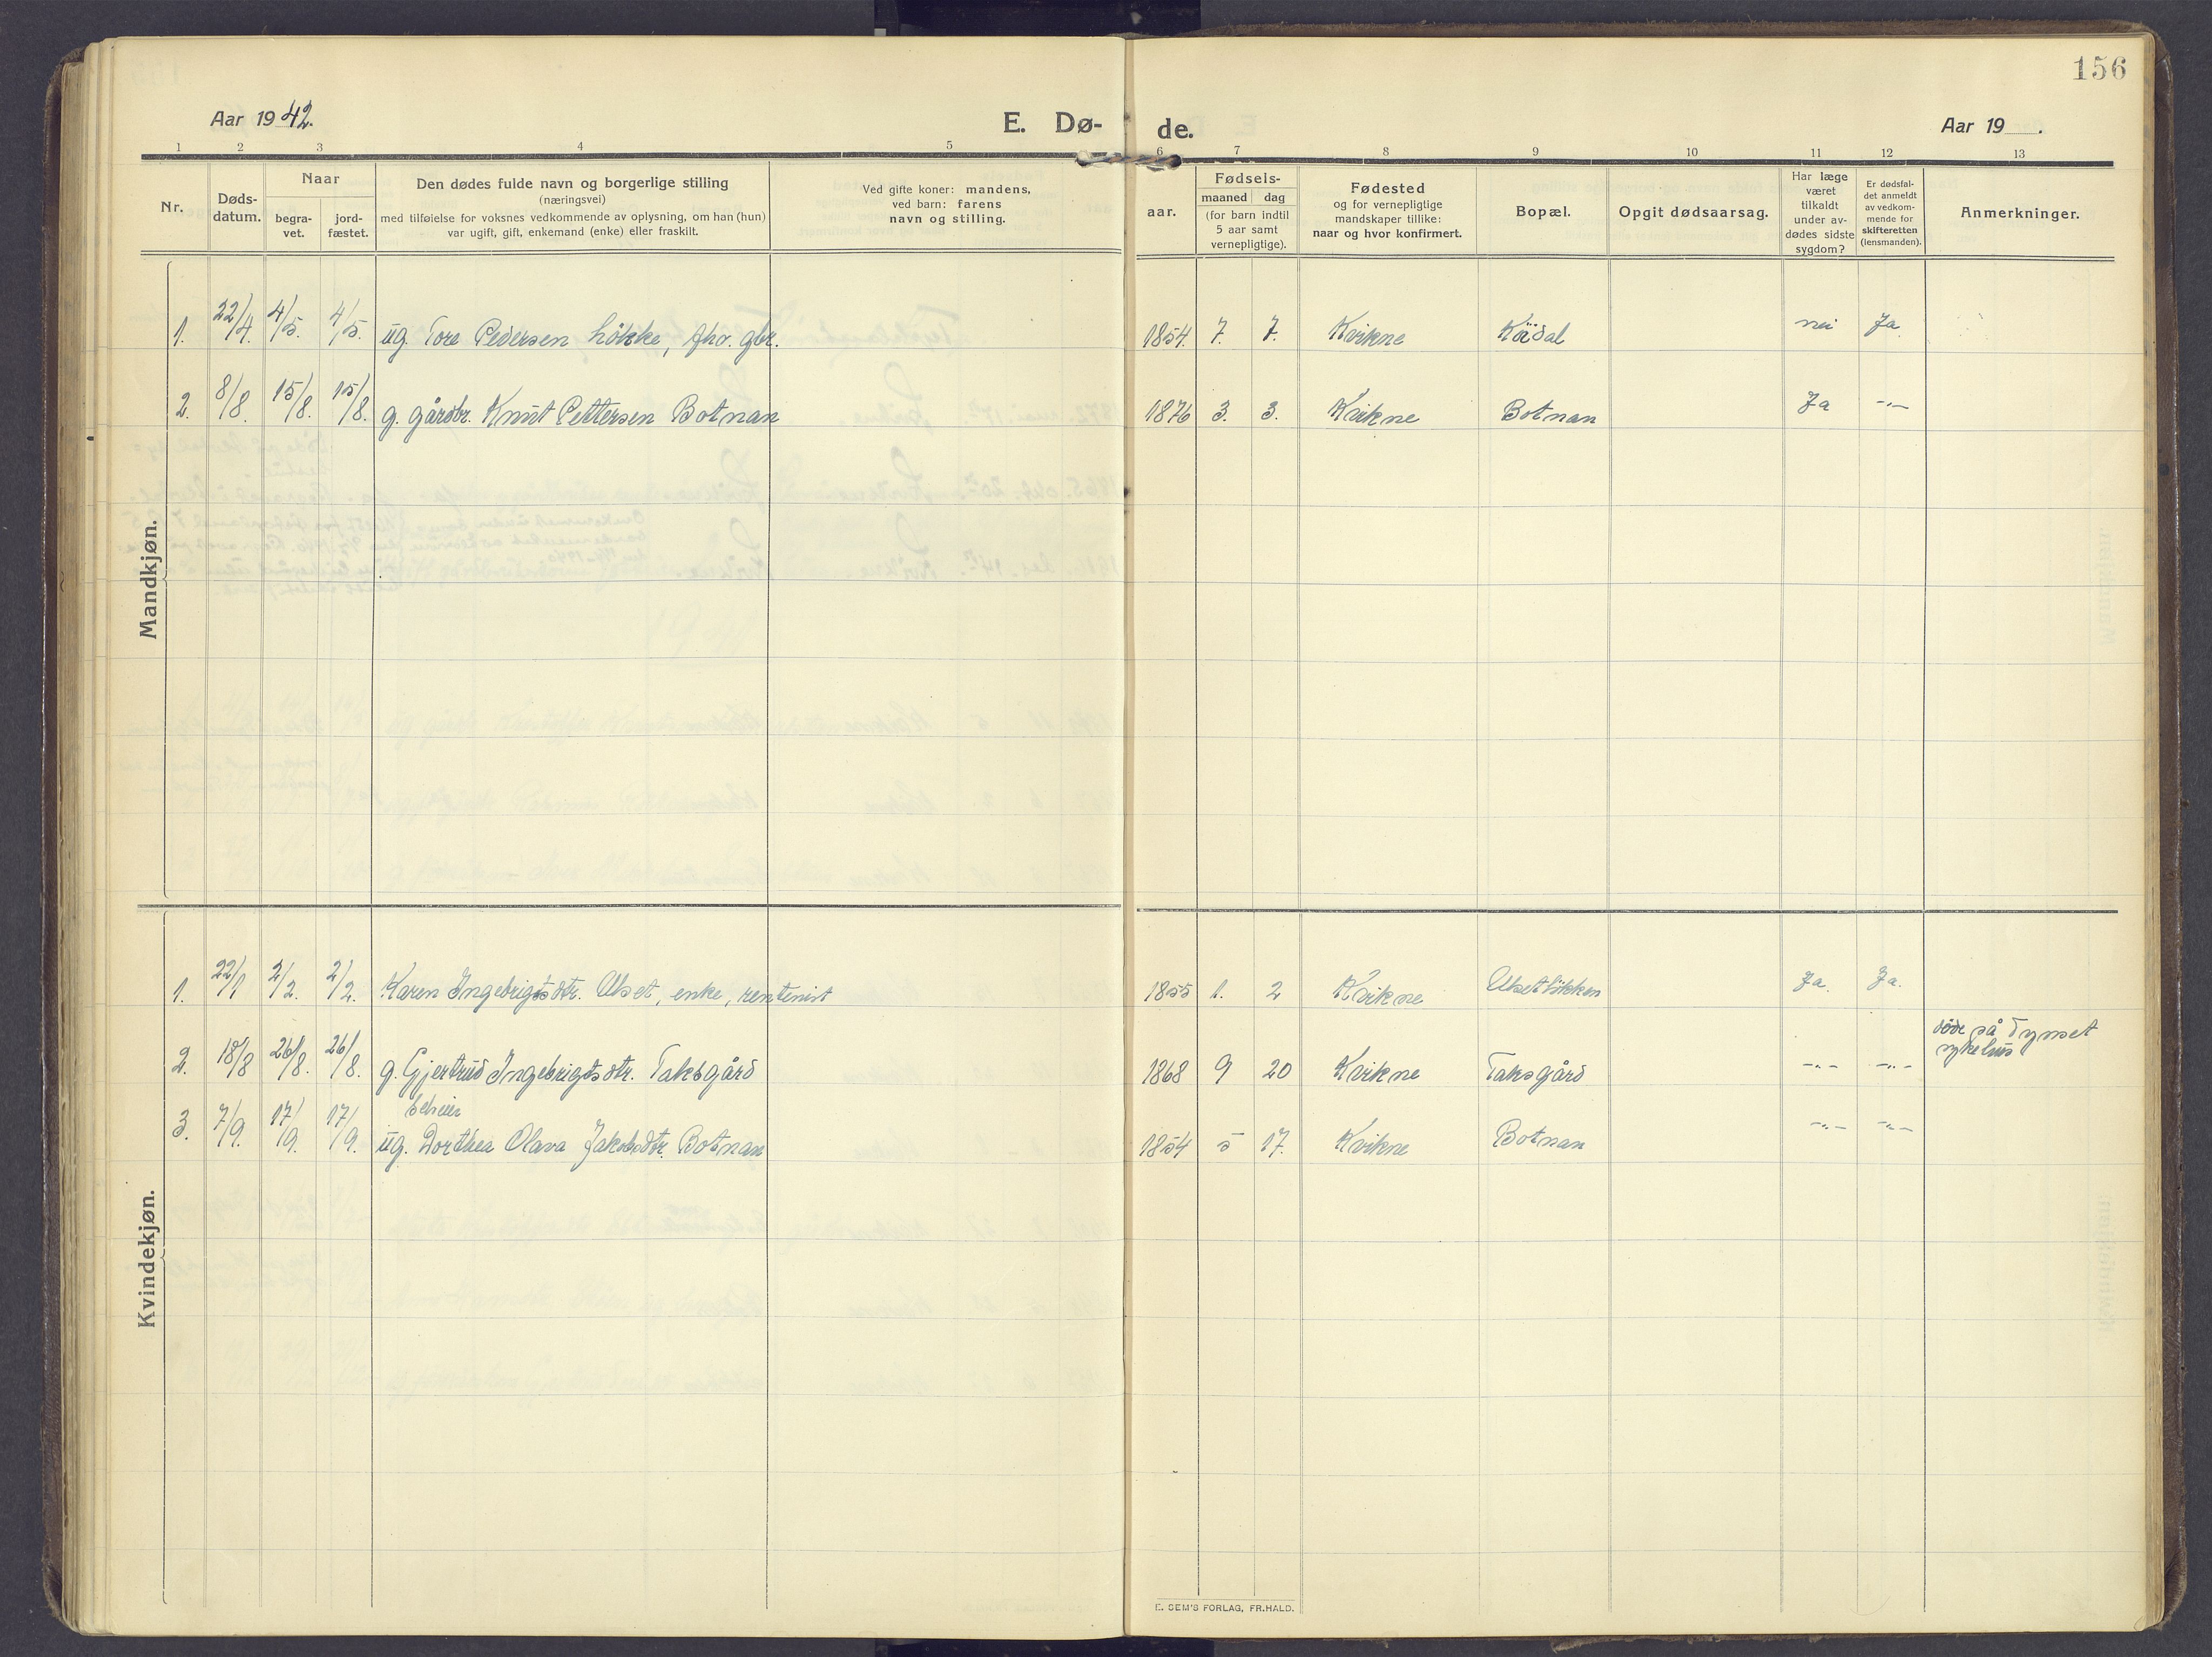 156
Aar 1942.
E. Dø-
de.
Aar 19 .
1 2 3 4 5 6 7 8 9 10 11 12 13
Nr.
Døds-
datum.
Naar
begra-
vet.
jord-
fæstet.
Den dødes fulde navn og borgerlige stilling
(næringsvei)
med tilføielse for voksnes vedkommende av oplysning, om han (hun)
var ugift, gift, enkemand (enke) eller fraskilt.
Ved gifte koner: mandens,
ved barn: farens
navn og stilling.
Fødsels-
aar.
maaned dag
(for barn indtil
5 aar samt
vernepligtige).
Fødested
og for vernepligtige
mandskaper tillike:
naar og hvor konfirmert.
Bopæl.
Opgit dødsaarsag.
Har læge
været
tilkaldt
under av-
dødes sidste
sygdom?
Er dødsfal-
det anmeldt
av vedkom-
mende for
skifteretten
(lensmanden).
Anmerkninger.
Mandkjøn.
1. 22/4. 4/5. 4/5. ug. Tore Pedersen Løkke, fhv. gbr. 1854. 7. 7. Kvikne nei Ja
2. 8/8. 15/8. 15/8. g. gårdbr. Knut Pettersen Botnan 1876 3. 3. Kvikne Botnan Ja -"-
Kvindekjøn.
1. 22/1 2/2. 2/2. Karen Ingebrigtsdtr. Utset, enke, rentenist 1855 1. 2 Kvikne Ja. Ja.
døde på Tynset
sykehus
2. 18/8 26/8. 26/8. g. Gjertrud Ingebrigtsdtr. Taksgård 1868 9 20 Kvikne Taksgård -"- -"-
3. 7/9. 17/9. 17/9. ug. Dorthea Olava Jakobsdtr. Botnan 1854 5 17. Kvikne Botnan -"- -"-
E. SEM'S FORLAG, FR.HALD.